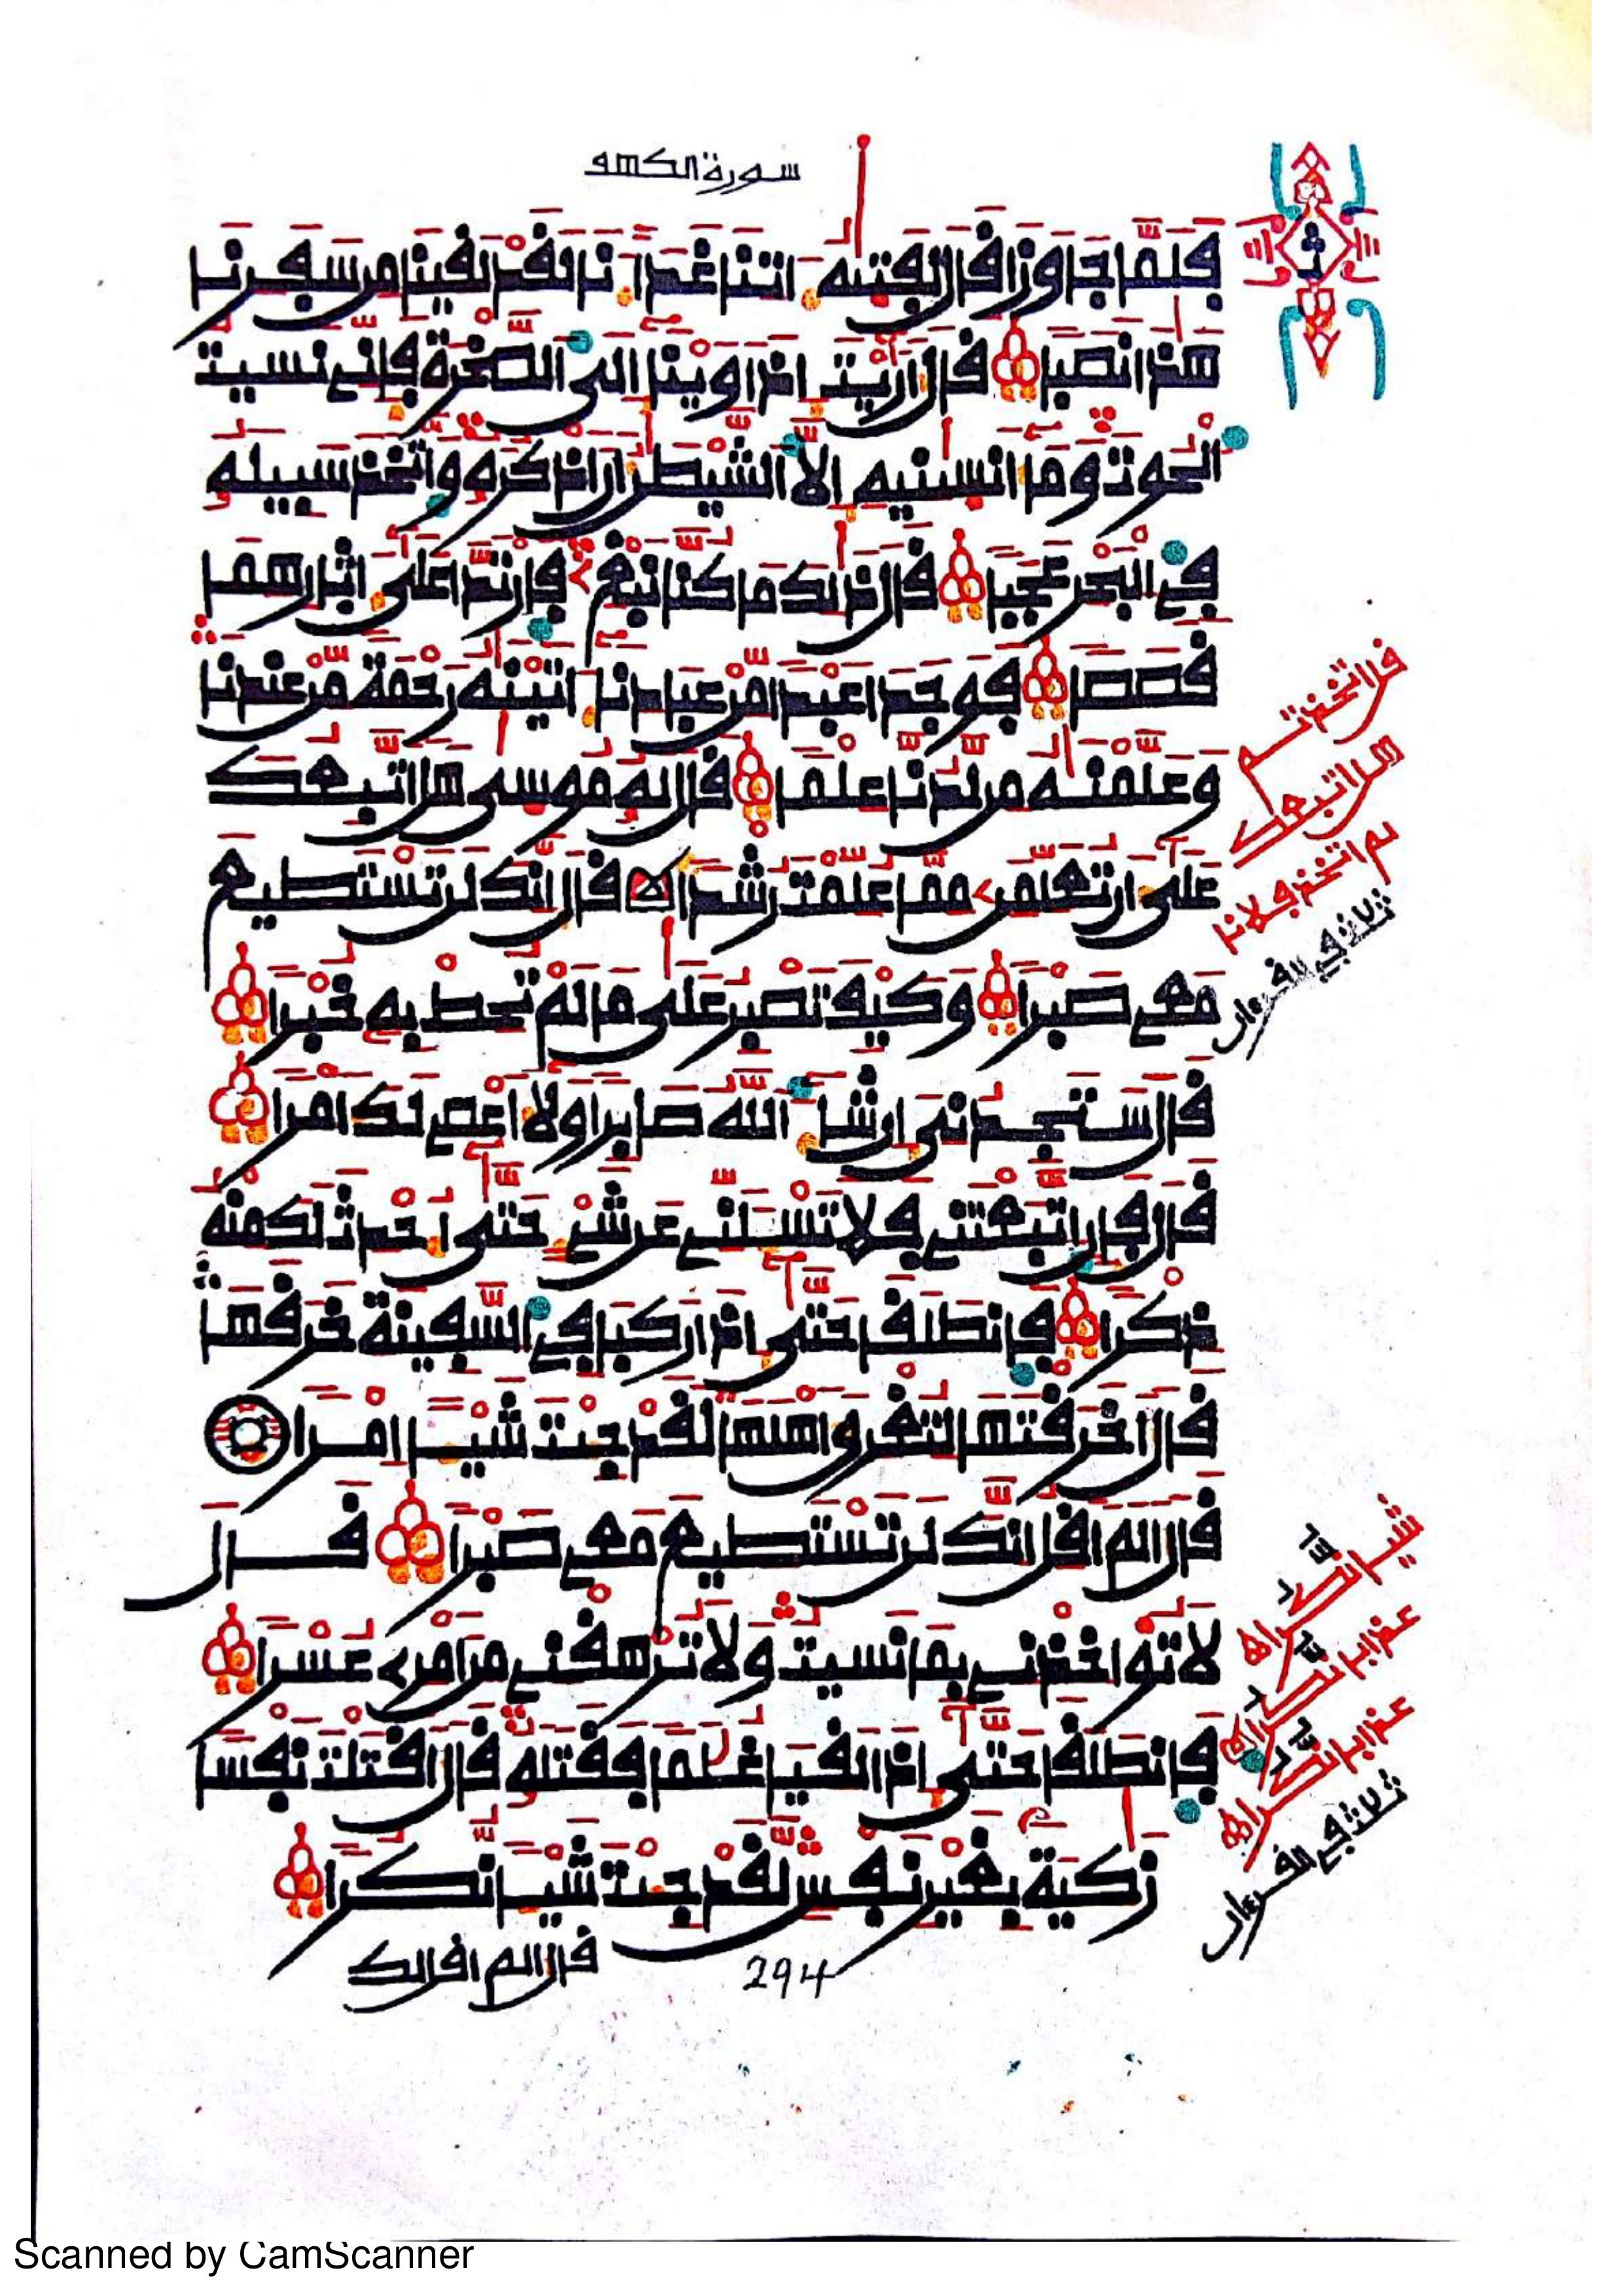 سورة الكهف
فلما جاوزا قال لفتيه اتنا غدانا لقد لقينا من سفرنا
هذا نصبا قال اريت اذ اوينا الى الصخرة فاني نسيت
الحوت وما انسنيه الا الشيطن ان اذكره واتخذ سبيله
في البحر عجبا قال ذلك ما كنا نبغ فارتدا على اثارهما
قصصا فوجدا عبدا من عبادنا اتينه رحمة من عندنا
وعلمنه من لدنا علما قال له موسى هل اتبعك
على ان تعلمن مما علمت رشدا قال انك لن تستطيع
معي صبرا وكيف تصبر على ما لم تحط به خبرا
قال ستجدني ان شا الله صابرا ولا اعصي لك امرا
قال فان اتبعتني فلا تسلني عن شي حتى احدث لك منه
ذكرا فانطلقا حتى اذا ركبا في السفينة خرقها
قال اخرقتها لتغرق اهلها لقد جيت شيا امرا
قال الم اقل انك لن تستطيع معي صبرا قال
لا تواخذني بما نسيت ولا ترهقني من امري عسرا
فانطلقا حتى اذا لقيا غلما فقتله قال اقتلت نفسا
زكية بغير نفس لقد جيت شيا نكرا
قال الم اقل لك
294
قل اتخذتم
هل اتبعك
لم اتخذ فلانا
ثلاث في القرءان
شيا نكرا
عذابا نكرا
عذابا نكرا
ثلاث في القرءان
Scanned by CamScanner